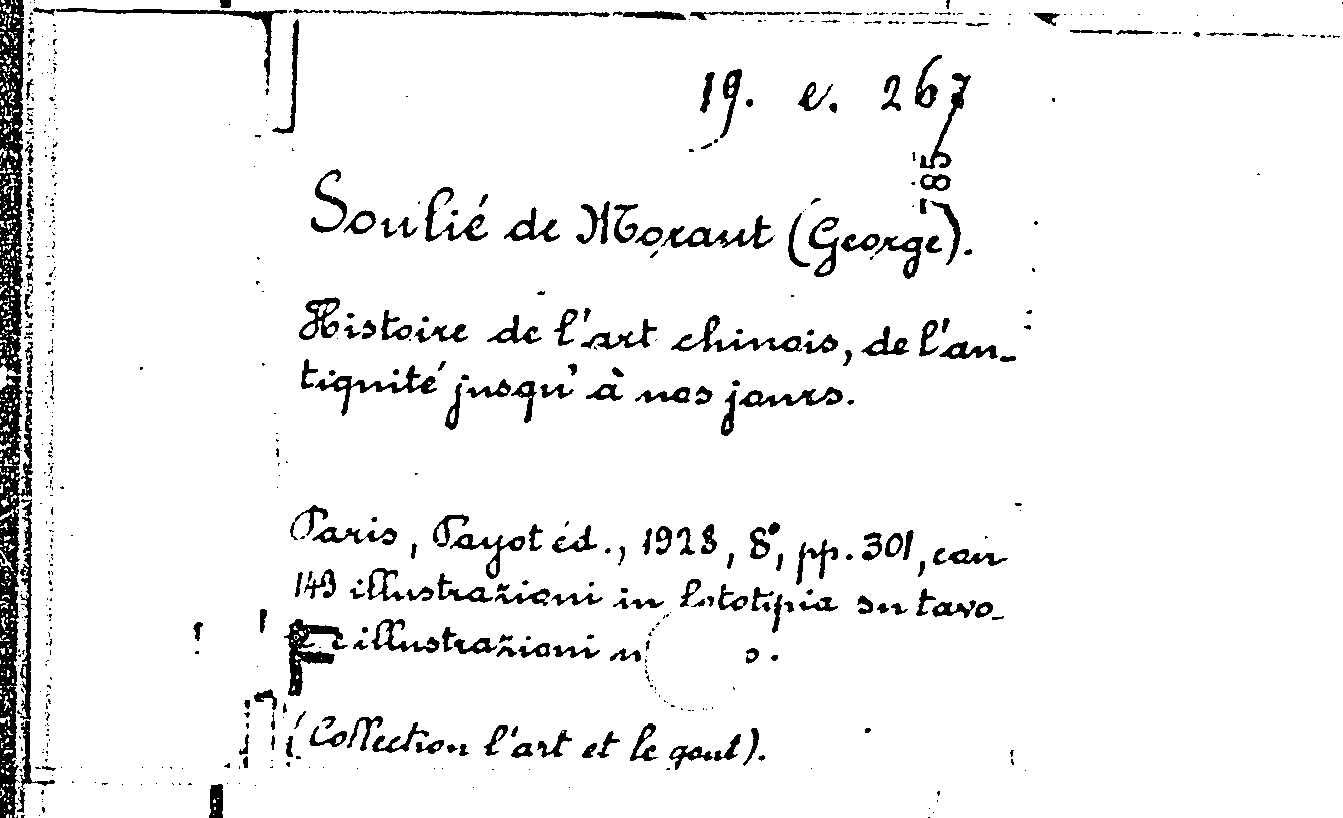 19. e. 267
785
Soulié de Morant (George).
Histoire de l'art chinois, de l'an-
tiquité jusqu'à nos jours.
Paris, Payot éd., 1928, 8°, pp. 301, con
149 illustrazioni in fototipia su tavo-
le e illustrazioni
(Collection l'art et le gout).